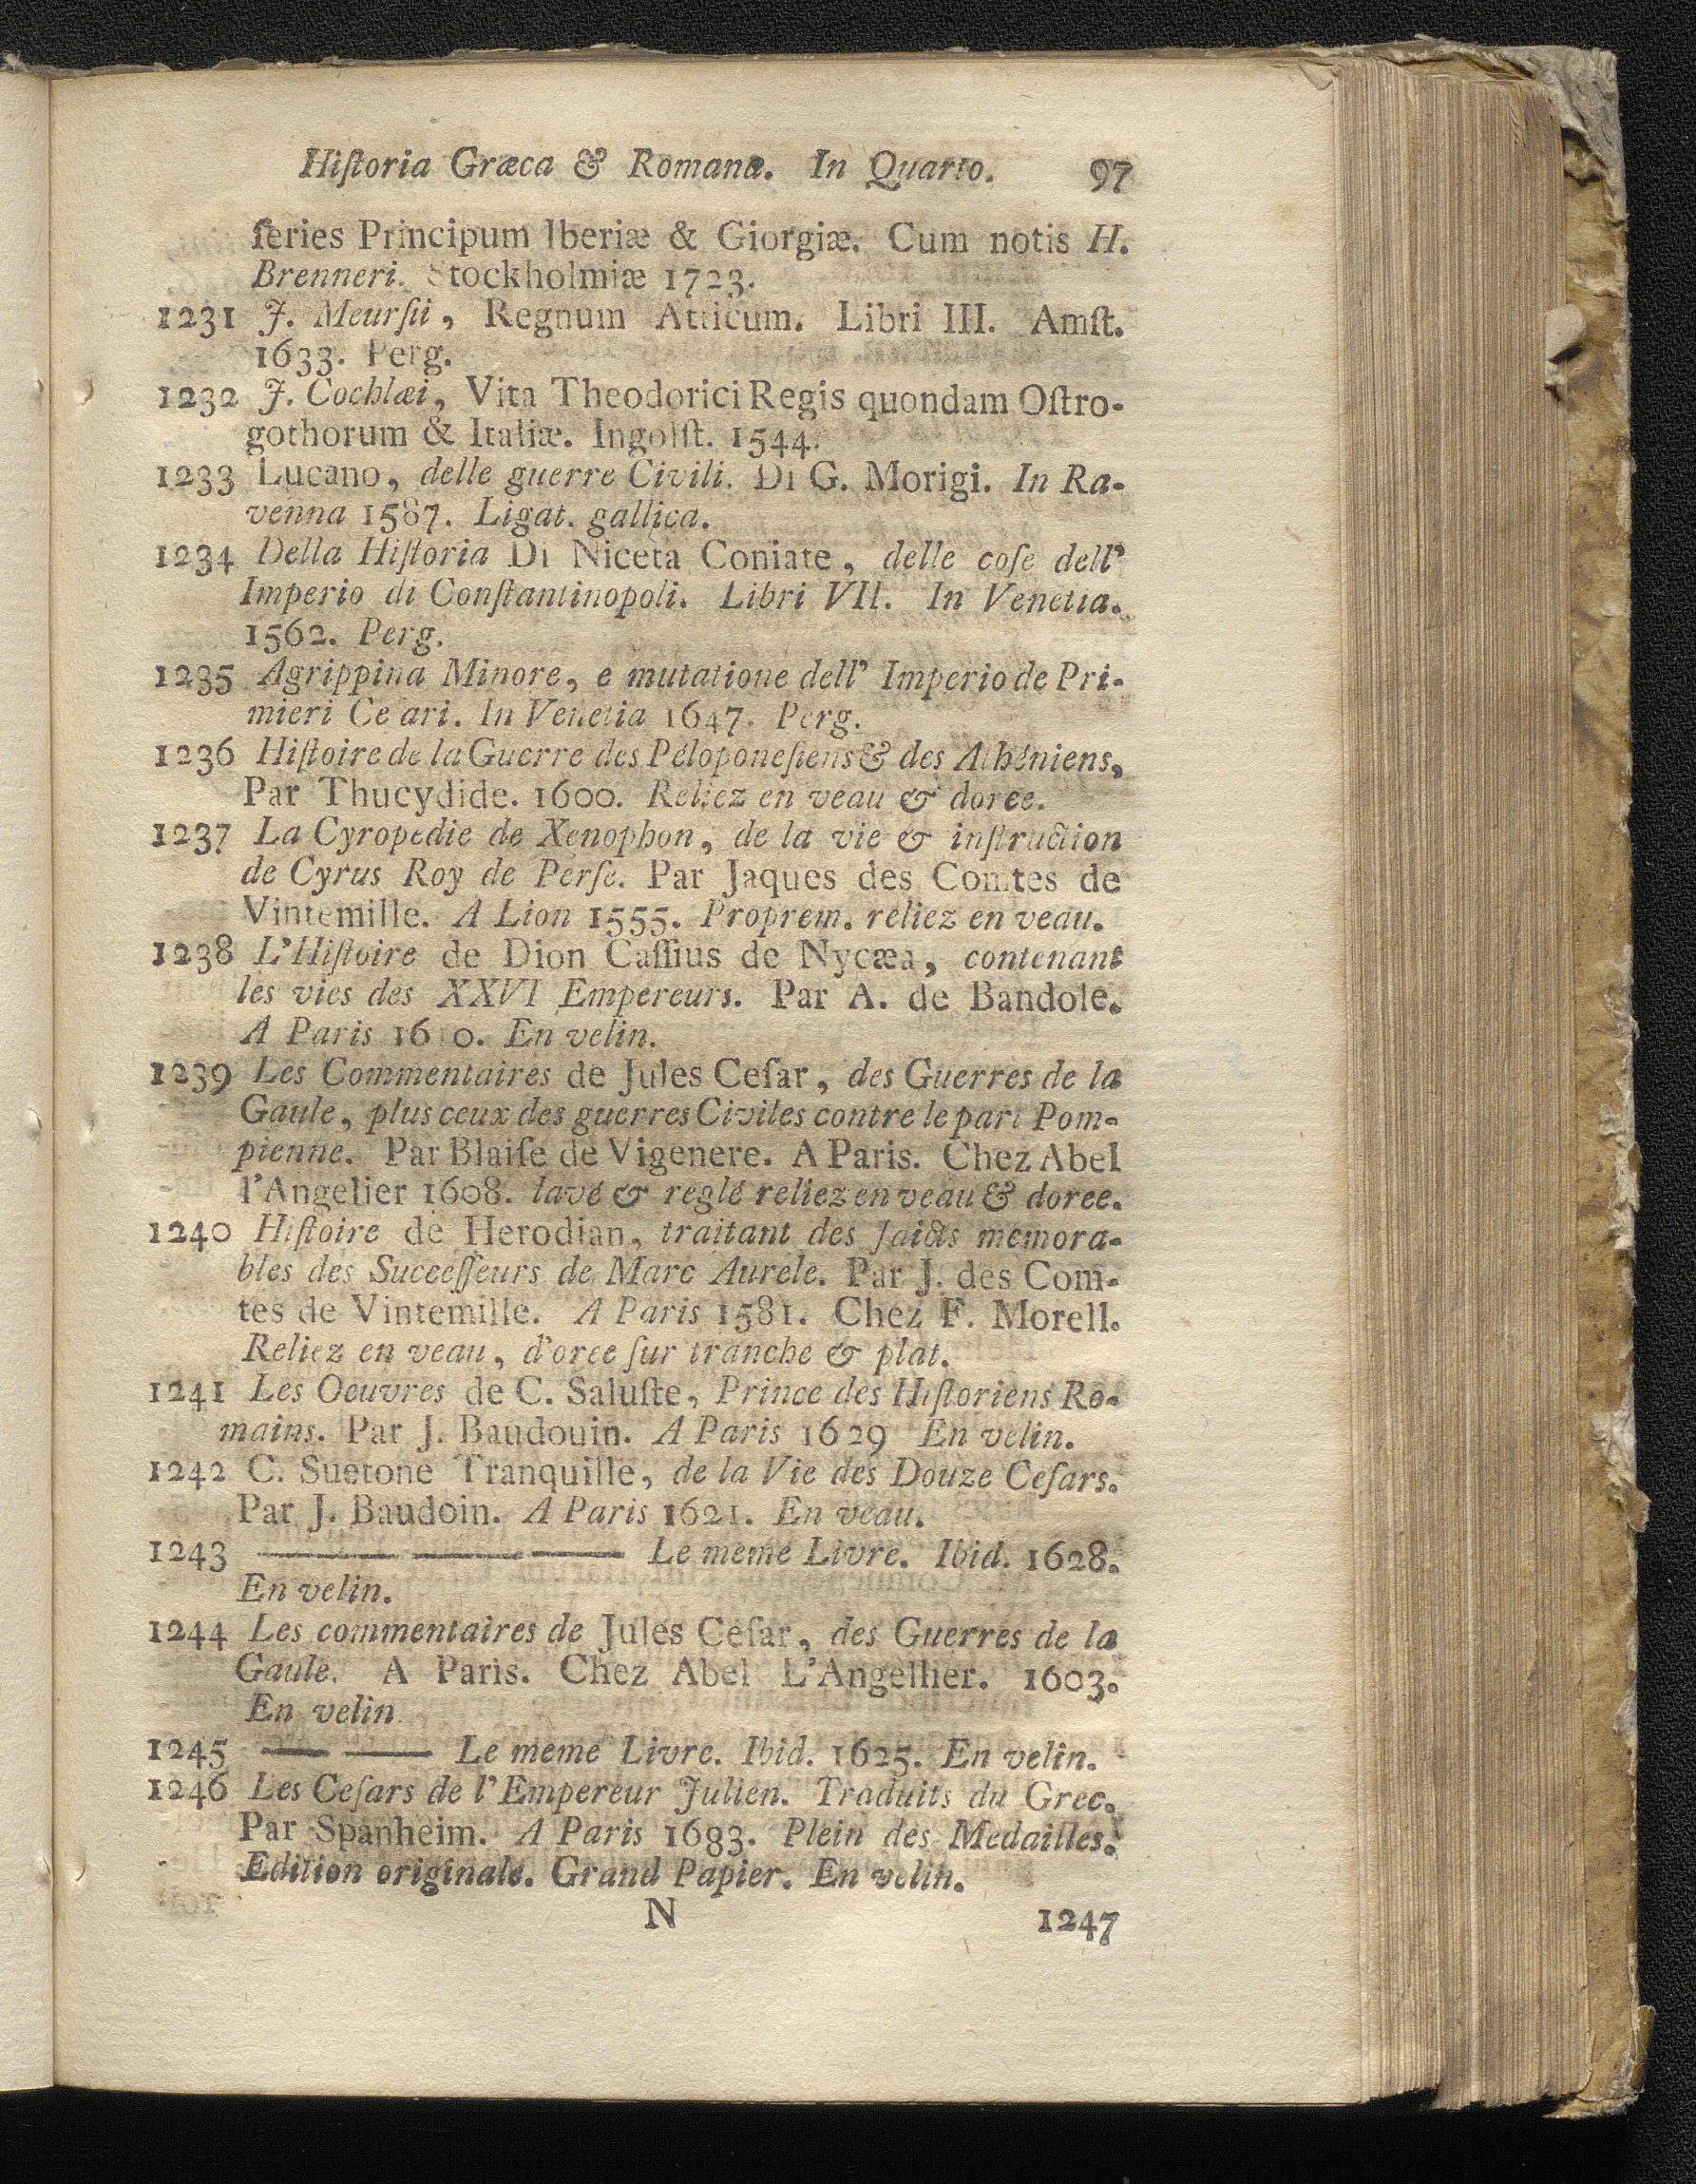 Hiſtoria Græca & Romana. In Quarto. 97
ſeries Principum Iberiæ & Giorgiæ. Cum notis H.
Brenneri. Stockholmiæ 1723.
1231 J. Meurſii, Regnum Atticum. Libri III. Amſt.
1633. Perg.
1232 J. Cochlæi, Vita Theodorici Regis quondam Oſtro-
gothorum & Italiæ. Ingolſt. 1544.
1233 Lucano, delle guerre Civili. Di G. Morigi. In Ra-
venna 1587. Ligat. gallica.
1234 Della Hiſtoria Di Niceta Coniate, delle coſe dell'
Imperio di Conſtantinopoli. Libri VII. In Venetia.
1562. Perg.
1235 Agrippina Minore, e mutatione dell' Imperio de Pri-
mieri Ce ari. In Venetia 1647. Perg.
1236 Hiſtoire de la Guerre des Péloponeſiens & des Athéniens,
Par Thucydide. 1600. Reliez en veau & doree.
1237 La Cyropedie de Xenophon, de la vie & inſtruction
de Cyrus Roy de Perſe. Par Jaques des Comtes de
Vintemille. A Lion 1555. Proprem. reliez en veau.
1238 L'Hiſtoire de Dion Caſſius de Nycæa, contenant
les vies des XXVI Empereurs. Par A. de Bandole.
A Paris 1610. En velin.
1239 Les Commentaires de Jules Ceſar, des Guerres de la
Gaule, plus ceux des guerres Civiles contre le part Pom-
pienne. Par Blaiſe de Vigenere. A Paris. Chez Abel
l'Angelier 1608. lavé & reglé reliez en veau & doree.
1240 Hiſtoire de Herodian, traitant des faicts memora-
bles des Succeſſeurs de Marc Aurele. Par J. des Com-
tes de Vintemille. A Paris 1581. Chez F. Morell.
Reliez en veau, d'oree ſur tranche & plat.
1241 Les Oeuvres de C. Saluſte, Prince des Hiſtoriens Ro-
mains. Par J. Baudouin. A Paris 1629 En velin.
1242 C. Suetone Tranquille, de la Vie des Douze Ceſars.
Par J. Baudoin. A Paris 1621. En veau.
1243 ——— ——— ——— Le meme Livre. Ibid. 1628.
En velin.
1244 Les commentaires de Jules Ceſar, des Guerres de la
Gaule. A Paris. Chez Abel L'Angellier. 1603.
En velin.
1245 ——— ——— Le meme Livre. Ibid. 1625. En velin.
1246 Les Ceſars de l'Empereur Julien. Traduits du Grec.
Par Spanheim. A Paris 1683. Plein des Medailles.
Edition originale. Grand Papier. En velin.
N 1247